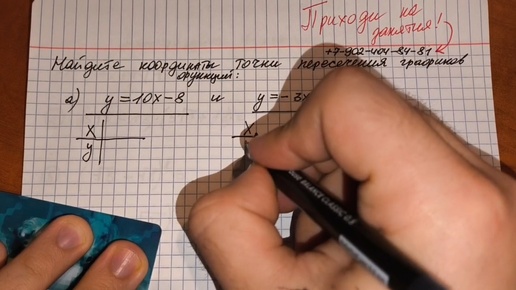 Приходи на
занятия!
+7-902-404-84-81
Найдите координаты точки пересечения графиков
функций:
а) y = 10x - 8 и y = -3x
x x
y